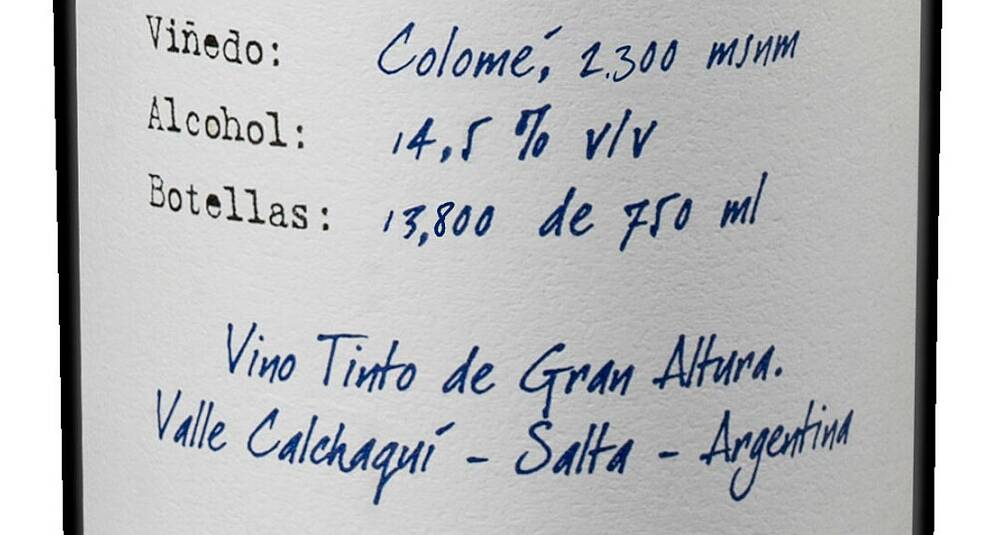 Viñedo: Colomé, 2.300 msnm
Alcohol: 14,5 % v/v
Botellas: 13,800 de 750 ml
Vino Tinto de Gran Altura.
Valle Calchaquí - Salta - Argentina